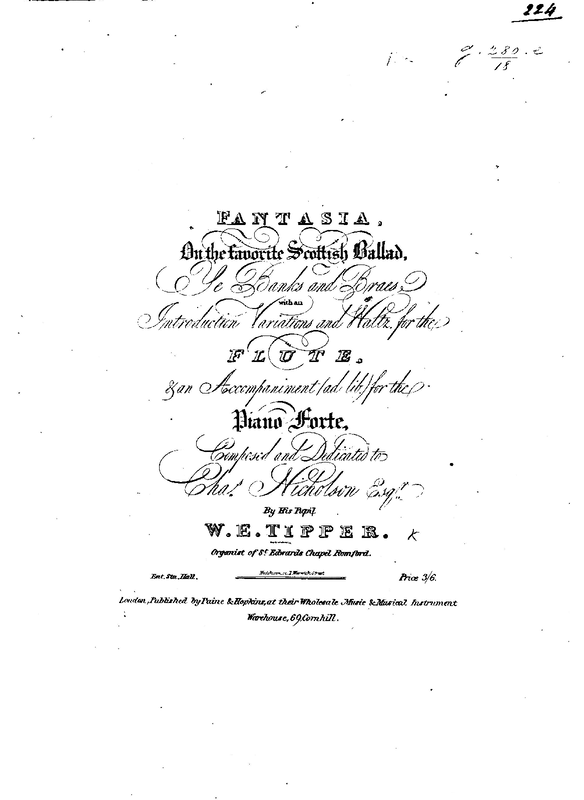 224
g. 280. e
18
FANTASIA,
On the favorite Scottish Ballad,
Ye Banks and Braes,
with an
Introduction Variations and Waltz, for the
FLUTE,
& an Accompaniment (ad lib:) for the
Piano Forte,
Composed and Dedicated to
Chas. Nicholson Esqr.
By His Pupil
W. E. TIPPER.
K
Organist of St. Edwards Chapel Romford.
Ent. Sta. Hall.
Price 3/6.
London, Published by Paine & Hopkins, at their Wholesale Music & Musical Instrument
Warehouse, 69, Cornhill.